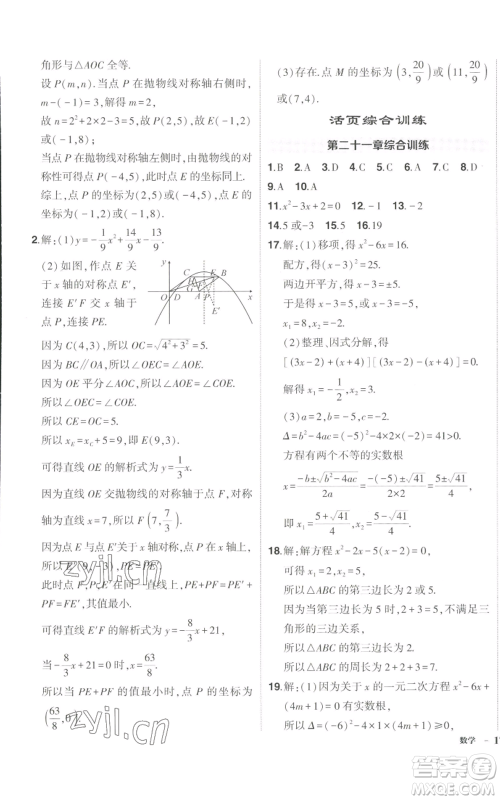 角形与△AOC 全等.
设 P(m,n). 当点 P 在抛物线对称轴右侧时,
m-(-1)=3, 所以 m=2.
故 n=2²+2×2-3=5, 所以 P(2,5),
故点 E(-1,2)或(-1,8);
当点 P 在抛物线对称轴左侧时,由抛物线的
对称性可得点 P(-4,5),此时点 E 坐标同上.
综上,点 P(2,5)或(-4,5),点 E 的坐标为
(-1,2)或(-1,8).
2.解:(1)y=-1/9x²+14/9x-13/9.
(2)如图,作点 E 关于
x 轴的对称点 E′,
连接 E′F 交 x 轴于
点 P,连接 PE.
因为 C(4,3),所以 OC=√4²+3²=5.
因为 BC∥OA,所以∠OEC=∠AOE.
因为 OE 平分∠AOC,所以∠AOE=∠COE.
所以∠OEC=∠COE,所以 CE=OC=5.
所以 x_E=x_C+5=9,即 E(9,3).
可得直线 OE 的解析式为 y=1/3x.
因为直线 OE 交抛物线的对称轴于点 F,对称轴
为直线 x=7,所以 F(7,7/3).
因为点 E 与点 E′关于 x 轴对称,点 P 在 x 轴上,
所以 E′(9,-3),PE=PE′.
此时点 P,E′,F 在同一直线上,PE+PF=PE′+
PF=E′F,其值最小.
可得直线 E′F 的解析式为 y=-8/3x+21,
当-8/3x+21=0 时,x=63/8.
所以当 PE+PF 的值最小时,点 P 的坐标为
(63/8,0).
(3)存在. 点 M 的坐标为(3,20/9)或(11,20/9)
或(7,4).
活页综合训练
第二十一章综合训练
9.A 10.A
11.x²-3x+2=0 12.-1 13.-2
14.5或-3 15.5 16.19
17.解:(1)移项,得 x²-6x=16.
配方,得(x-3)²=25.
两边开平方,得 x-3=±5.
所以 x₁=8,x₂=-2.
(2)整理、因式分解,得
[(3x-2)+(x+4)][(3x-2)-(x+4)]=0.
解得 x₁=-1/2,x₂=3.
(3)a=2,b=-5,c=-2,
Δ=b²-4ac=(-5)²-4×2×(-2)=41>0,
方程有两个不等的实数根
x=-b±√b²-4ac/2a=-(-5)±√41/2×2=5±√41/4,
即 x₁=5+√41/4,x₂=5-√41/4.
18.解:解方程 x²-2x-5(x-2)=0,
得 x₁=5,x₂=2,
所以△ABC 的第三边长为 2 或 5.
因为△ABC 的第三边长为 2 时不满足三
角形的三边关系,
所以△ABC 的第三边长为 5,
所以△ABC 的周长为 2+4+5=11.
19.解:(1)因为关于 x 的一元二次方程 x²-6x
所以 Δ=(-6)²-4×1×(4m+1)≥0,
数学 - 1
zyjl.cn
zyjl.cn